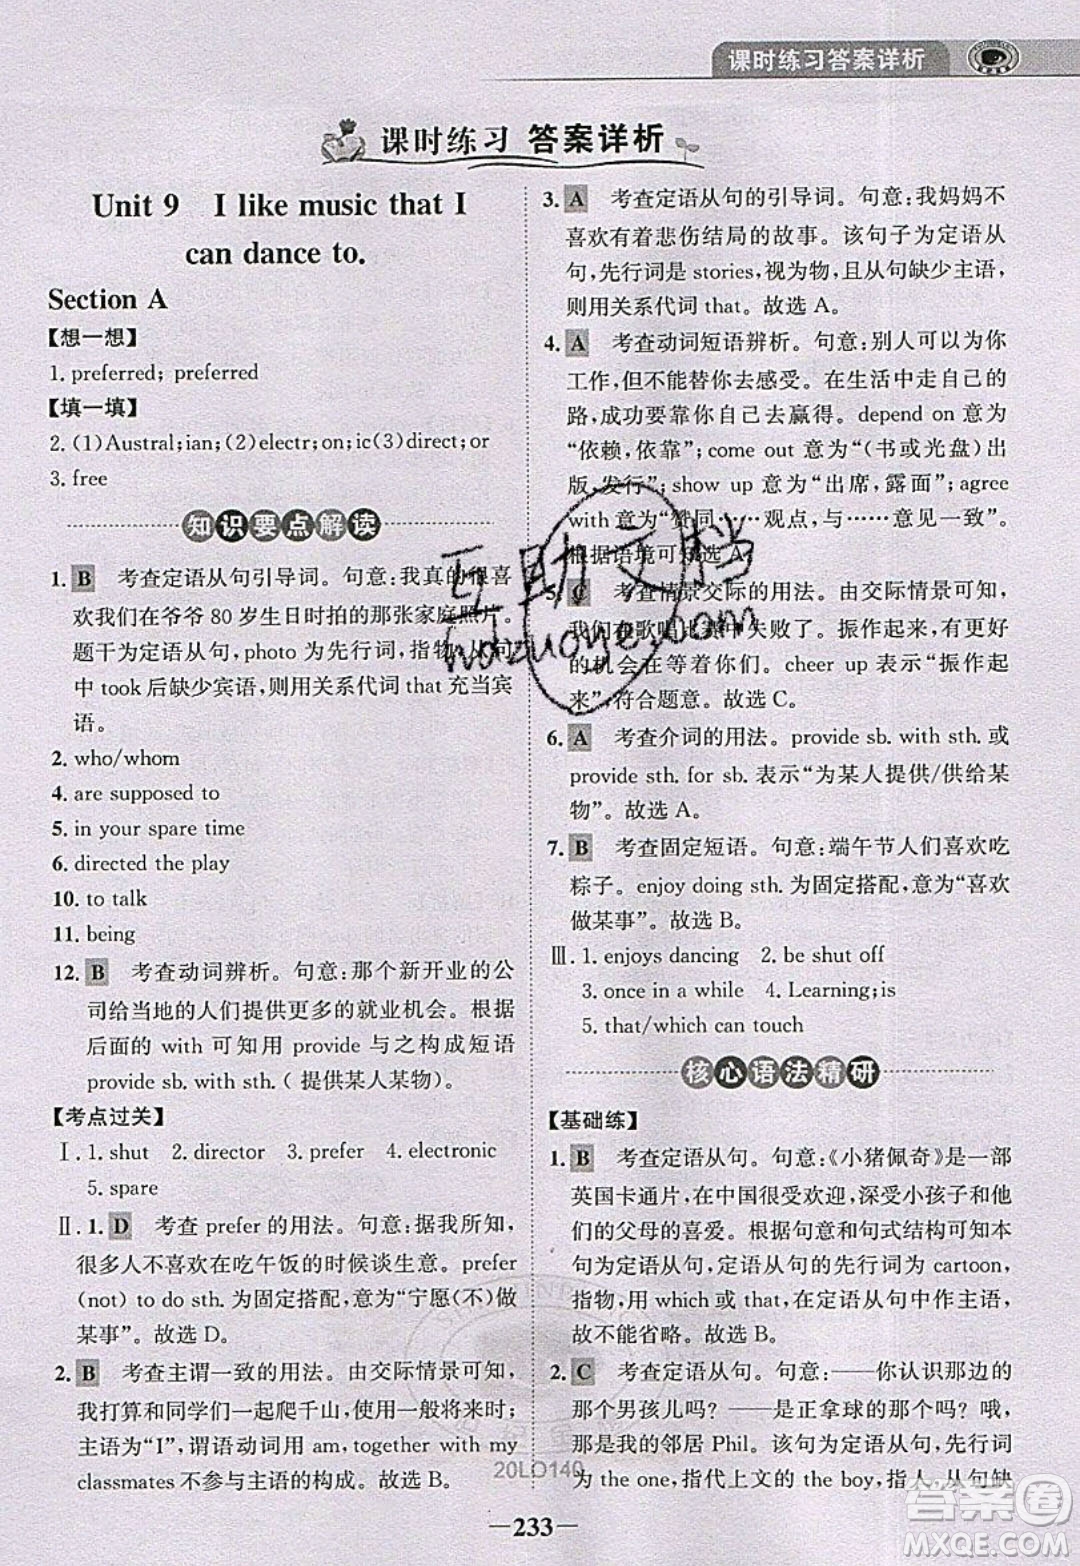 课时练习答案详析
课时练习 答案详析
Unit 9 I like music that I
can dance to.
Section A
【想一想】
1. preferred; preferred
【填一填】
2. (1)Austral;ian;(2)electr;on;ic(3)direct;or
3. free
知识要点解读
1. B 考查定语从句引导词。句意:我真的很喜
欢我们在爷爷 80 岁生日时拍的那张家庭照片。
题干为定语从句,photo 为先行词,指物,从句
中 took 后缺少宾语,则用关系代词 that 充当宾
语。
2. who/whom
4. are supposed to
5. in your spare time
6. directed the play
10. to talk
11. being
12. B 考查动词辨析。句意:那个新开业的公
司给当地的人们提供更多的就业机会。根据
后面的 with 可知用 provide 与之构成短语
provide sb. with sth.( 提供某人某物)。
【考点过关】
Ⅰ. 1. shut 2. director 3. prefer 4. electronic
5. spare
Ⅱ. 1. D 考查 prefer 的用法。句意:据我所知,
很多人不喜欢在吃午饭的时候谈生意。prefer
(not) to do sth. 为固定搭配,意为“宁愿(不)做
某事”。故选 D。
2. B 考查主谓一致的用法。由交际情景可知,
我打算和同学们一起爬千山,使用一般将来时;
主语为“I”,谓语动词用 am,together with my
classmates 不参与主语的构成。故选 B。
3. A 考查定语从句的引导词。句意:我妈妈不
喜欢有着悲伤结局的故事。该句子为定语从
句,先行词是 stories,视为物,且从句缺少主语,
则用关系代词 that。故选 A。
4. A 考查动词短语辨析。句意:别人可以为你
工作,但不能替你去感受。在生活中走自己的
路,成功要靠你自己去赢得。depend on 意为
“依赖,依靠”;come out 意为“(书或光盘)出
版,发行”;show up 意为“出席,露面”;agree
with 意为“赞同……观点,与……意见一致”。
根据语境可知选 A。
5. C 考查情景交际的用法。由交际情景可知,
我们在歌唱比赛中失败了。振作起来,有更好
的机会在等着你们。cheer up 表示“振作起
来”,符合题意。故选 C。
6. A 考查介词的用法。provide sb. with sth. 或
provide sth. for sb. 表示“为某人提供/供给某
物”。故选 A。
7. B 考查固定短语。句意:端午节人们喜欢吃
粽子。enjoy doing sth. 为固定搭配,意为“喜欢
做某事”。故选 B。
Ⅲ. 1. enjoys dancing 2. be shut off
3. once in a while 4. Learning;is
5. that/which can touch
核心语法精研
【基础练】
1. B 考查定语从句。句意:《小猪佩奇》是一部
英国卡通片,在中国很受欢迎,深受小孩子和他
们的父母的喜爱。根据句意和句式结构可知本
句为定语从句,定语从句的先行词为 cartoon,
指物,用 which 或 that,在定语从句中作主语,
故不能省略。故选 B。
2. C 考查定语从句。句意:——你认识那边的
那个男孩儿吗? ——是正拿球的那个吗? 哦,
那是我的邻居 Phil。本句考查定语从句,先行词
为 the one,指代上文的 the boy,指人,从句缺
20LD140
— 233 —
互助文档
hdzuoye.com
答案圈
MXQE.COM